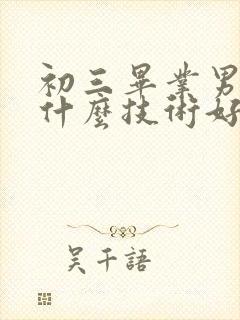 初三畢業男
什麼技術好
吴千語